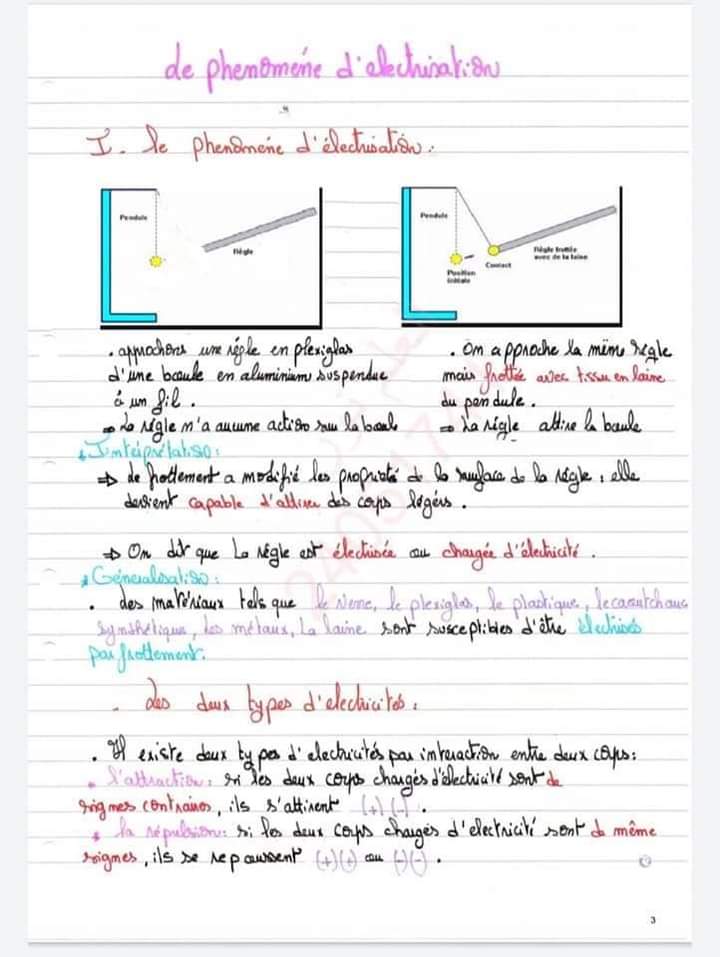 de phenomène d'electrisation
I. le phenomène d'électrisation :
Pendule
Règle
Pendule
Position
initiale
Contact
Règle frottée
avec de la laine
. approchons une règle en plexiglas
d'une boule en aluminium suspendue
à un fil.
⇒ La règle n'a aucune action sur la boule
. On approche la même règle
mais frottée avec tissu en laine
du pendule.
⇒ La règle attire la boule
* Interprétation :
⇒ de frottement a modifié les proprieté de la surface de la règle : elle
devient capable d'attirer des corps légers.
⇒ On dit que La règle est électrisée ou chargée d'électricité.
* Géneralisation :
. des matériaux tels que le verre, le plexiglas, le plastique, le caoutchouc
synthétique, les métaux, La laine sont susceptibles d'être électrisés
par frottement.
- des deux types d'electricités :
. Il existe deux types d'electricités par interaction entre deux corps :
* l'attraction : si les deux corps chargés d'électricité sont de
signes contraires, ils s'attirent (+) (-).
* la répulsion : si les deux corps chargés d'electricité sont de même
signes, ils se repoussent (+)(+) ou (-)(-).
3